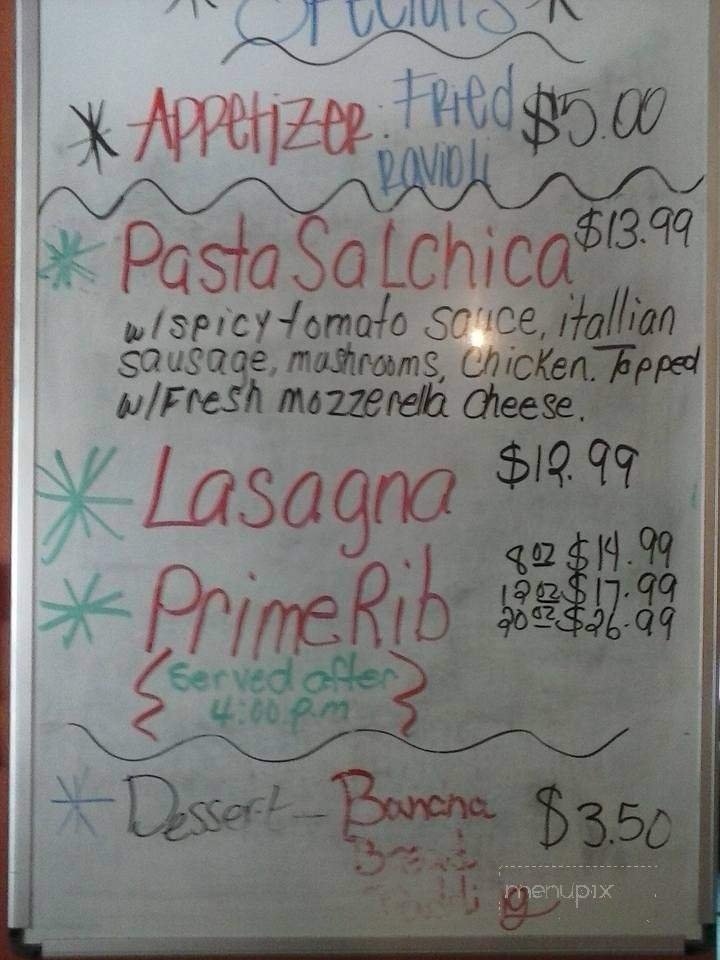 Specials
* Appetizer: Fried $5.00
Ravioli
* Pasta Salchica $13.99
w/spicy tomato sauce, itallian
sausage, mashrooms, chicken. Topped
w/Fresh mozzerella cheese.
* Lasagna $12.99
* Prime Rib 8oz $14.99
12oz $17.99
20oz $26.99
{Served after}
4:00 p.m
* Dessert - Banana $3.50
Bread
Pudding
menupix